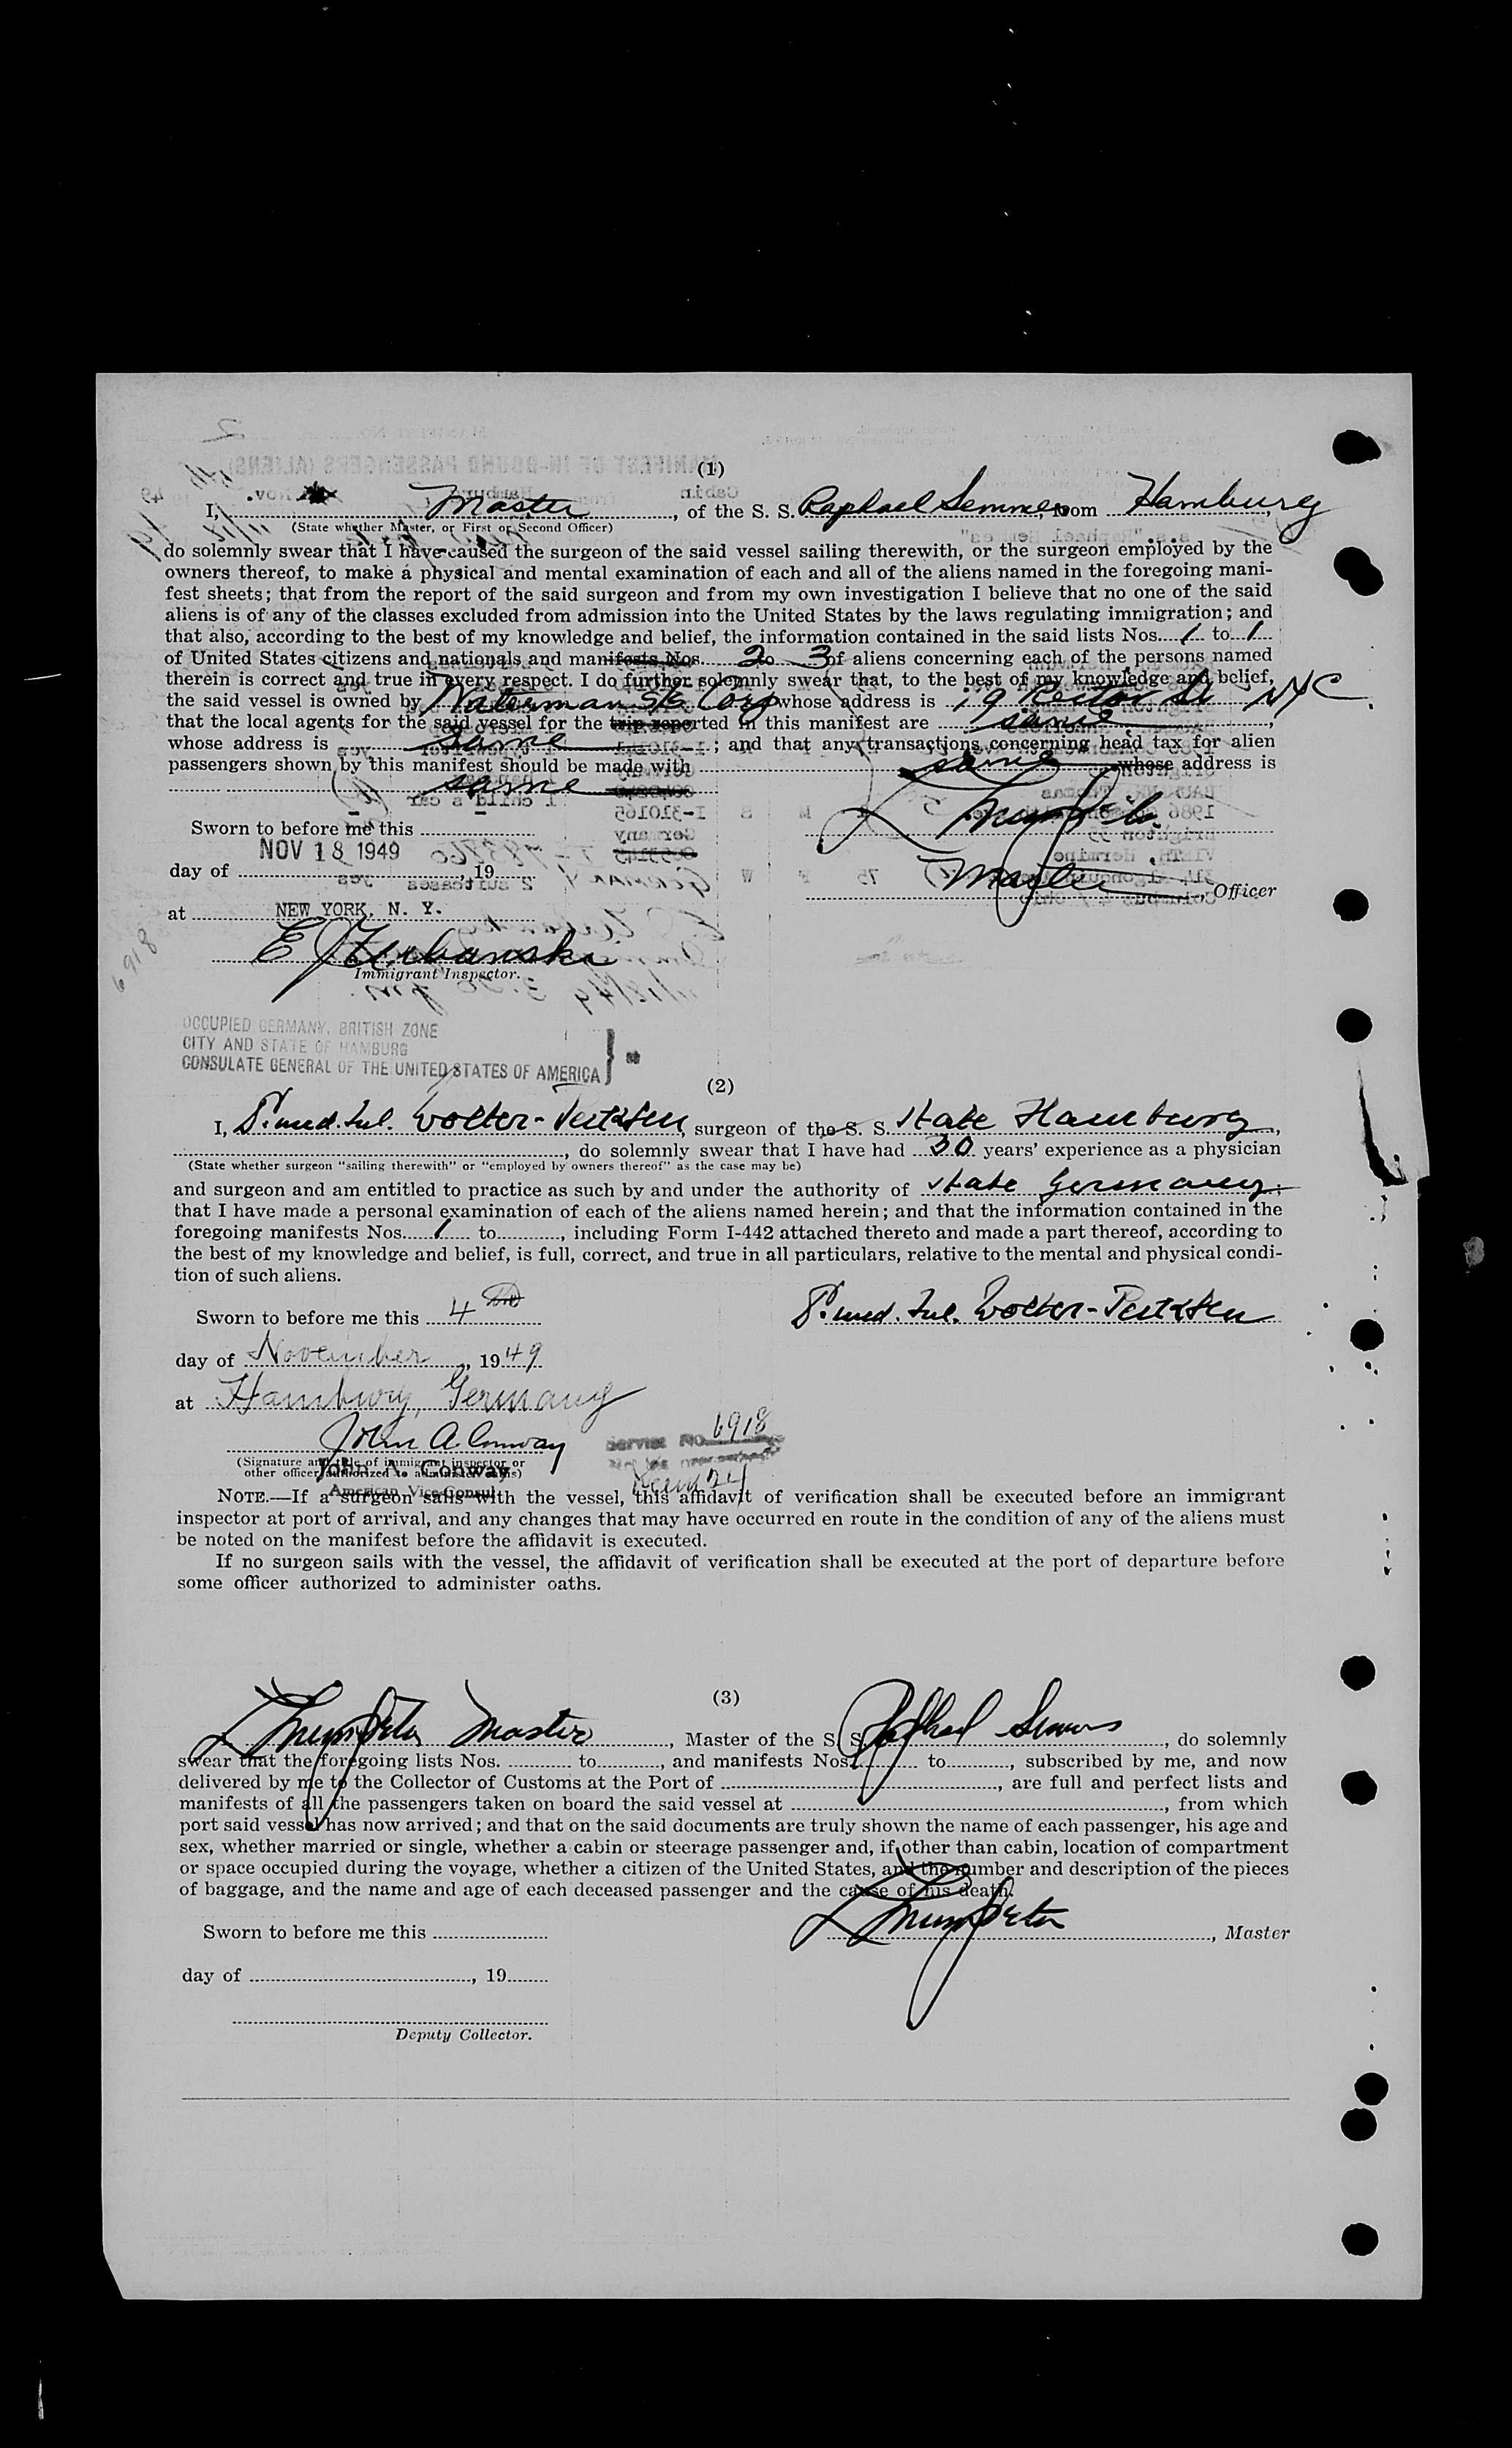 (1)
I, Master, of the S. S. Raphael Semmes, from Hamburg,
(State whether Master, or First or Second Officer)
do solemnly swear that I have caused the surgeon of the said vessel sailing therewith, or the surgeon employed by the
owners thereof, to make a physical and mental examination of each and all of the aliens named in the foregoing mani-
fest sheets; that from the report of the said surgeon and from my own investigation I believe that no one of the said
aliens is of any of the classes excluded from admission into the United States by the laws regulating immigration; and
that also, according to the best of my knowledge and belief, the information contained in the said lists Nos. 1 to 1
of United States citizens and nationals and manifests Nos. 2 to 3 of aliens concerning each of the persons named
therein is correct and true in every respect. I do further solemnly swear that, to the best of my knowledge and belief,
the said vessel is owned by Waterman S/S Corp whose address is 19 Rector St NYC
that the local agents for the said vessel for the trip reported in this manifest are same,
whose address is same; and that any transactions concerning head tax for alien
passengers shown by this manifest should be made with same whose address is
same
Sworn to before me this
NOV 18 1949
day of , 19
Master, Officer
at NEW YORK, N. Y.
Immigrant Inspector.
6918
OCCUPIED GERMANY, BRITISH ZONE
CITY AND STATE OF HAMBURG
CONSULATE GENERAL OF THE UNITED STATES OF AMERICA
(2)
I, Wolter- , surgeon of the S. S. State Hamburg,
, do solemnly swear that I have had 30 years' experience as a physician
(State whether surgeon "sailing therewith" or "employed by owners thereof" as the case may be)
and surgeon and am entitled to practice as such by and under the authority of state Germany;
that I have made a personal examination of each of the aliens named herein; and that the information contained in the
foregoing manifests Nos. 1 to , including Form I-442 attached thereto and made a part thereof, according to
the best of my knowledge and belief, is full, correct, and true in all particulars, relative to the mental and physical condi-
tion of such aliens.
Sworn to before me this 4
day of November, 1949
at Hamburg, Germany
John A. Conway
Service No. 6918
(Signature and title of immigrant inspector or
other officer authorized to administer oaths)
John A. Conway
American Vice Consul
NOTE.—If a surgeon sails with the vessel, this affidavit of verification shall be executed before an immigrant
inspector at port of arrival, and any changes that may have occurred en route in the condition of any of the aliens must
be noted on the manifest before the affidavit is executed.
If no surgeon sails with the vessel, the affidavit of verification shall be executed at the port of departure before
some officer authorized to administer oaths.
(3)
Master, Master of the S. S. Raphael Semmes, do solemnly
swear that the foregoing lists Nos. to , and manifests Nos. to , subscribed by me, and now
delivered by me to the Collector of Customs at the Port of , are full and perfect lists and
manifests of all the passengers taken on board the said vessel at , from which
port said vessel has now arrived; and that on the said documents are truly shown the name of each passenger, his age and
sex, whether married or single, whether a cabin or steerage passenger and, if other than cabin, location of compartment
or space occupied during the voyage, whether a citizen of the United States, and the number and description of the pieces
of baggage, and the name and age of each deceased passenger and the cause of his death.
Sworn to before me this
, Master
day of , 19
Deputy Collector.